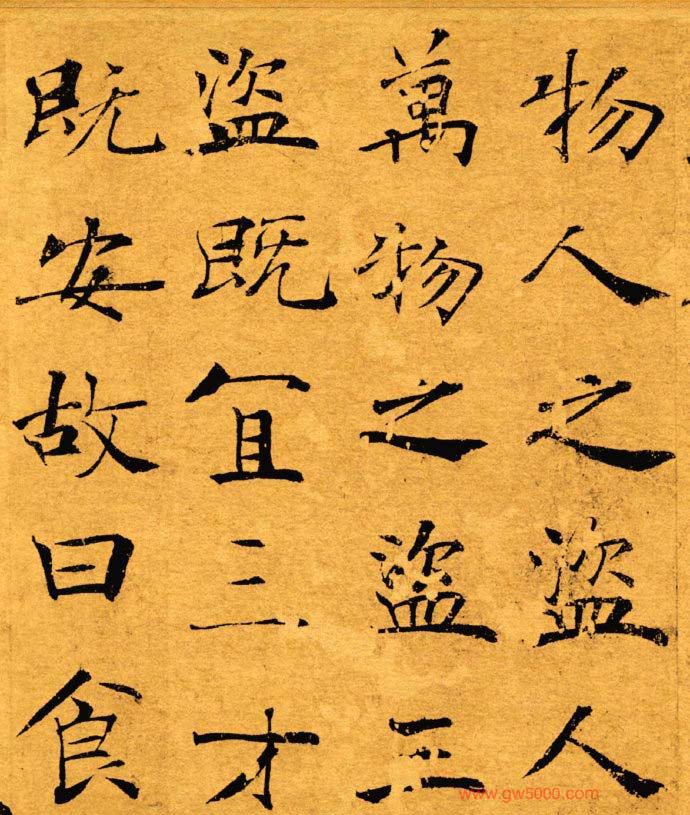 物人之盜人
萬物之盜三
盜既宜三才
既安故曰食
www.gw5000.com